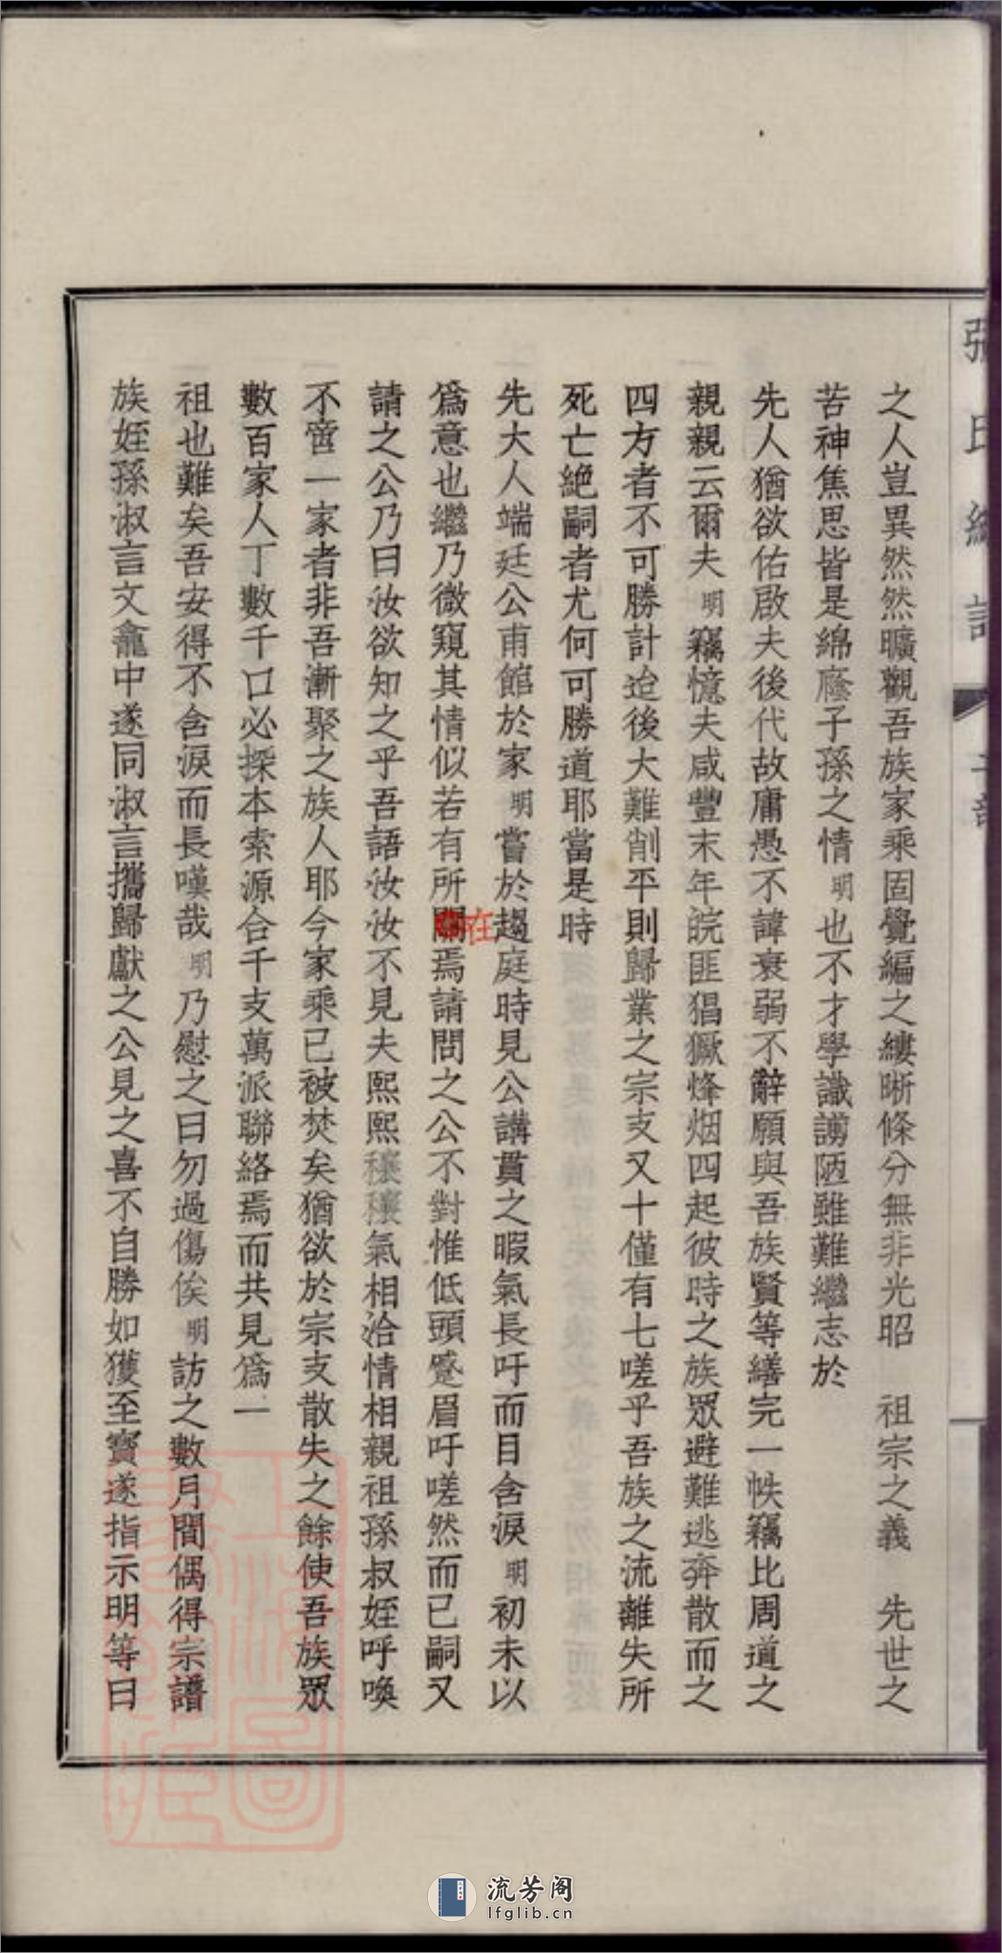 之人豈異然然曠觀吾族家乘固覺編之縷晰條分無非光昭　祖宗之義　先世之
苦神焦思皆是綿廕子孫之情明也不才學識謭陋雖難繼志於
先人猶欲佑啟夫後代故庸愚不諱衰弱不辭願與吾族賢等繕完一帙竊比周道之
親親云爾夫明竊憶夫咸豐末年皖匪猖獗烽烟四起彼時之族眾避難逃奔散而之
四方者不可勝計迨後大難削平則歸業之宗支又十僅有七嗟乎吾族之流離失所
死亡絕嗣者尤何可勝道耶當是時
先大人端廷公甫館於家明嘗於趨庭時見公講貫之暇氣長吁而目含淚明初未以
爲意也繼乃微窺其情似若有所關在焉請問之公不對惟低頭蹙眉吁嗟然而已嗣又
請之公乃曰汝欲知之乎吾語汝汝不見夫熙熙穰穰氣相洽情相親祖孫叔姪呼喚
不啻一家者非吾漸聚之族人耶今家乘已被焚矣猶欲於宗支散失之餘使吾族眾
數百家人丁數千口必探本索源合千支萬派聯絡焉而共見爲一
祖也難矣吾安得不含淚而長嘆哉明乃慰之曰勿過傷俟明訪之數月間偶得宗譜
族姪孫淑言文龕中遂同淑言攜歸獻之公見之喜不自勝如獲至寶遂指示明等曰
張氏總譜
流芳阁
lfglib.cn